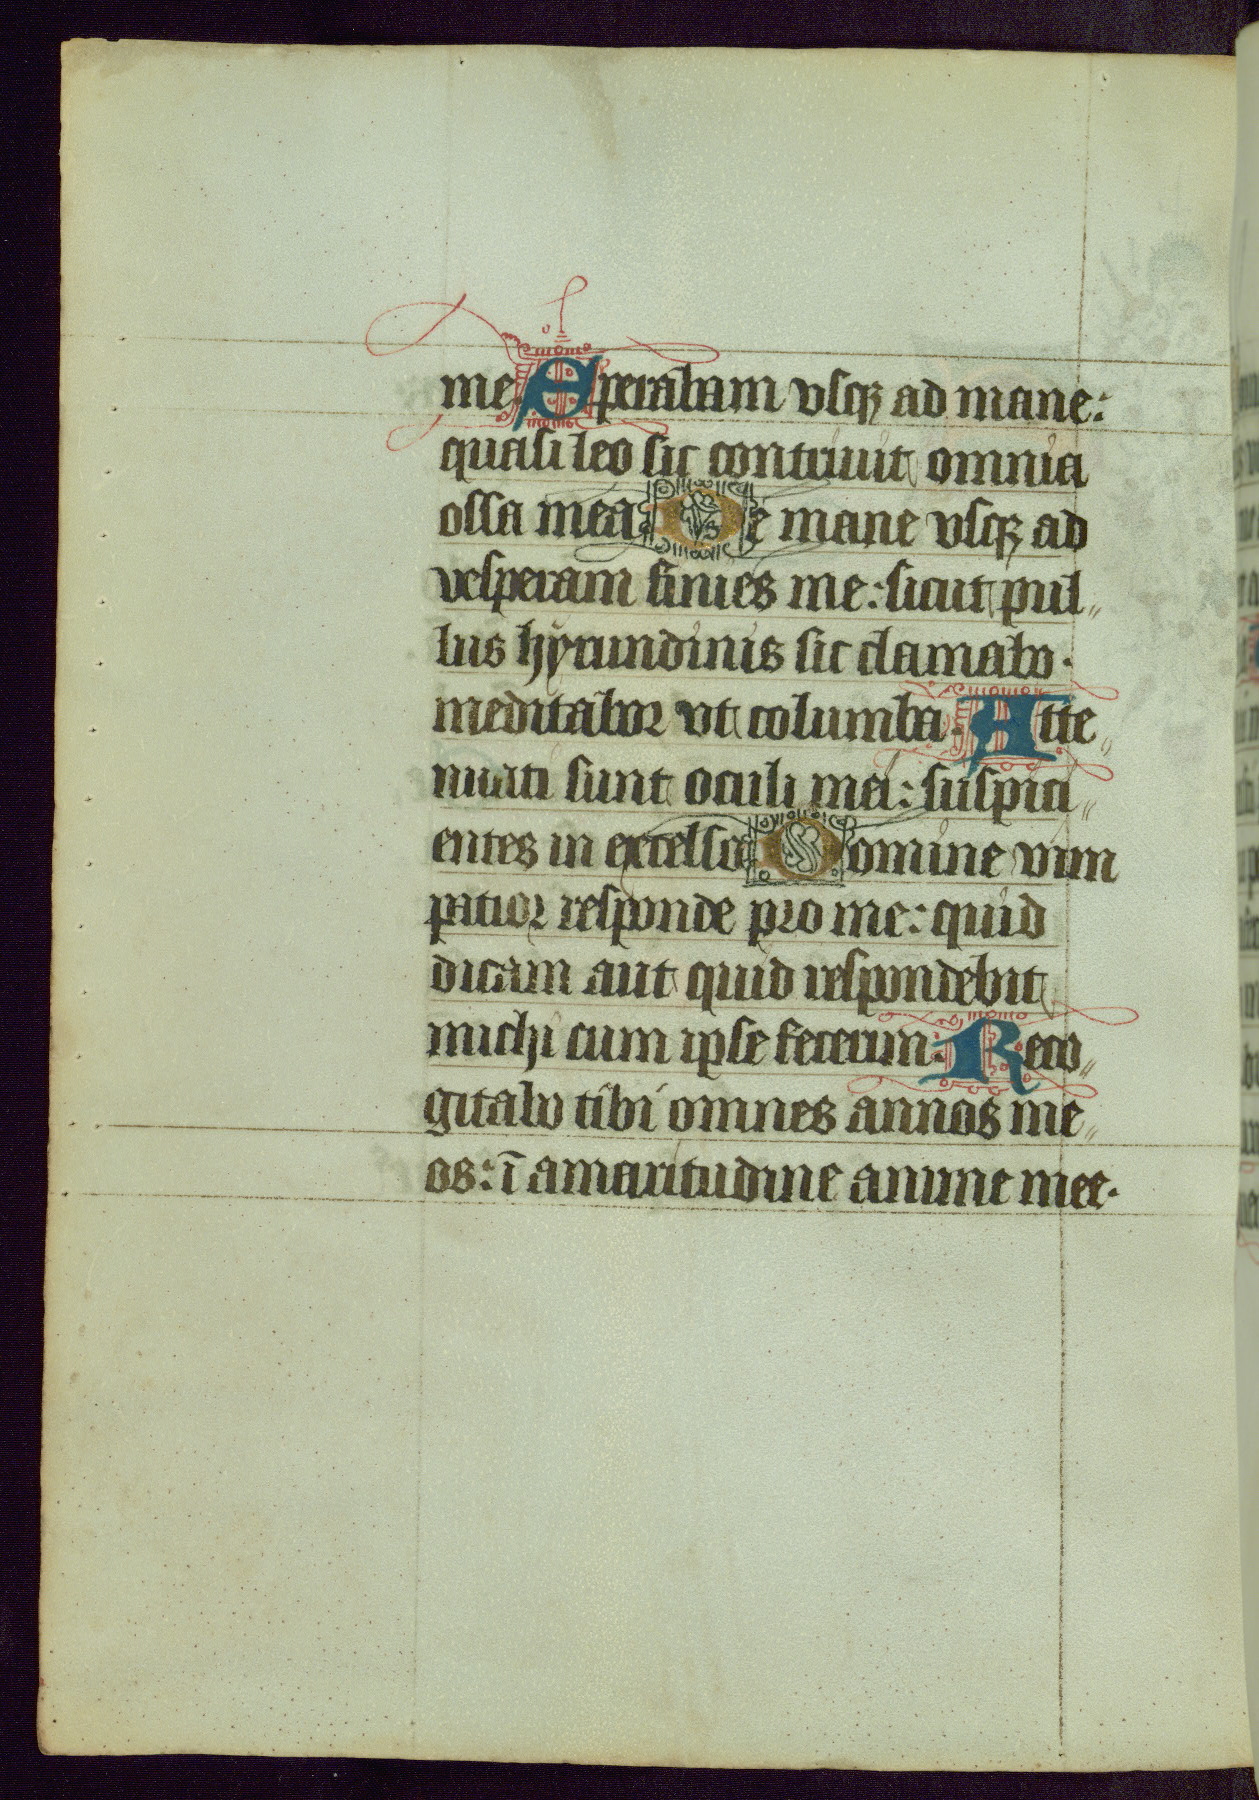 me. Sperabam vsqꝫ ad mane:
quasi leo sic contriuit omnia
ossa mea De mane vsqꝫ ad
vesperam finies me: sicut pul„
lus hyrundinis sic clamabo.
meditabor vt columba. Atte„
nuati sunt oculi mei: suspici„
entes in excelso Domine vim
patior responde pro me: quid
dicam aut quid respondebit
michi cum ipse fecerim. Reco„
gitabo tibi omnes annos me„
os: ī amaritudine anime mee.